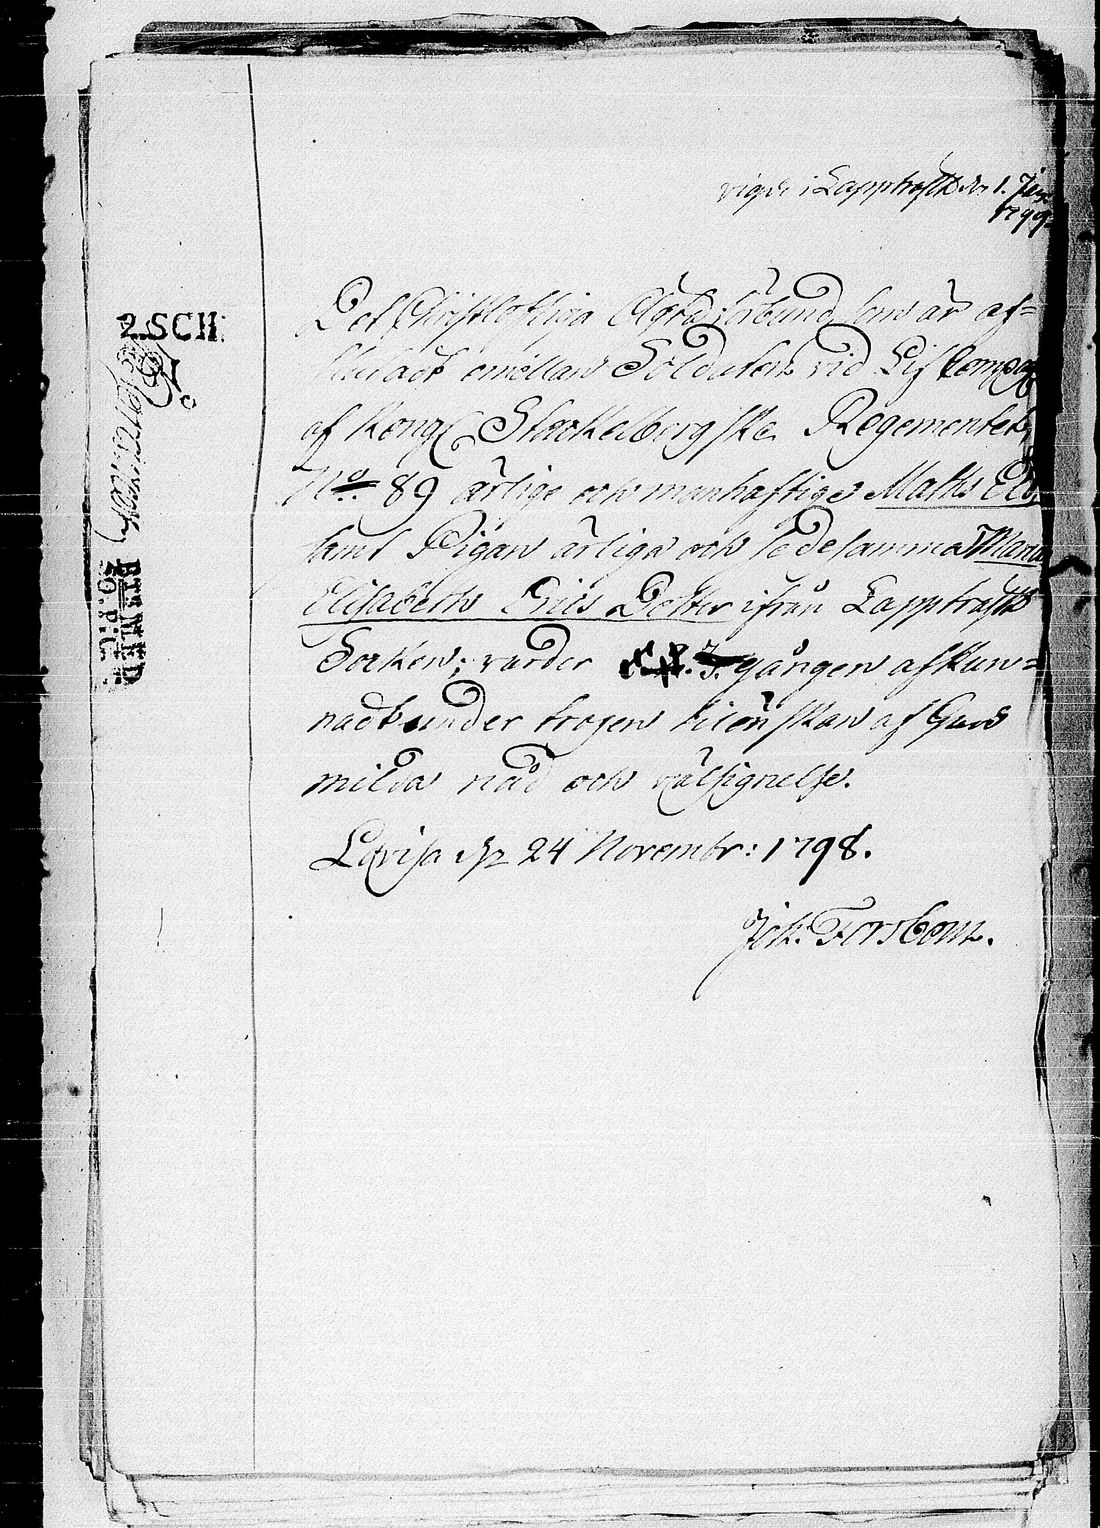 vigde i Lapptresk den 1. Jan.
1799.
2.SCH:
Det Christloflliga Ägtaförbund som är af=
slutadt emellan Soldaten vid Lif Comp:
af Kongl Stackelbergske Regementet
No. 89 ärlige och manhaftige Maths El
samt Pigan ärliga och sedesamma Maria
Elisabeth Erics Dotter ifrån Lapptresk
Socken; varder 3. gången afkun=
nadt under trogen tilönskan af Guds
milda nåd och välsignelse.
Lovisa den 24 Novembr: 1798.
Joh. Forsbom.